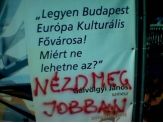 „Legyen Budapest
Európa Kulturális
Fővárosa!
Miért ne
lehetne az?”
Gálvölgyi János
színész
NÉZD MEG
JOBBAN